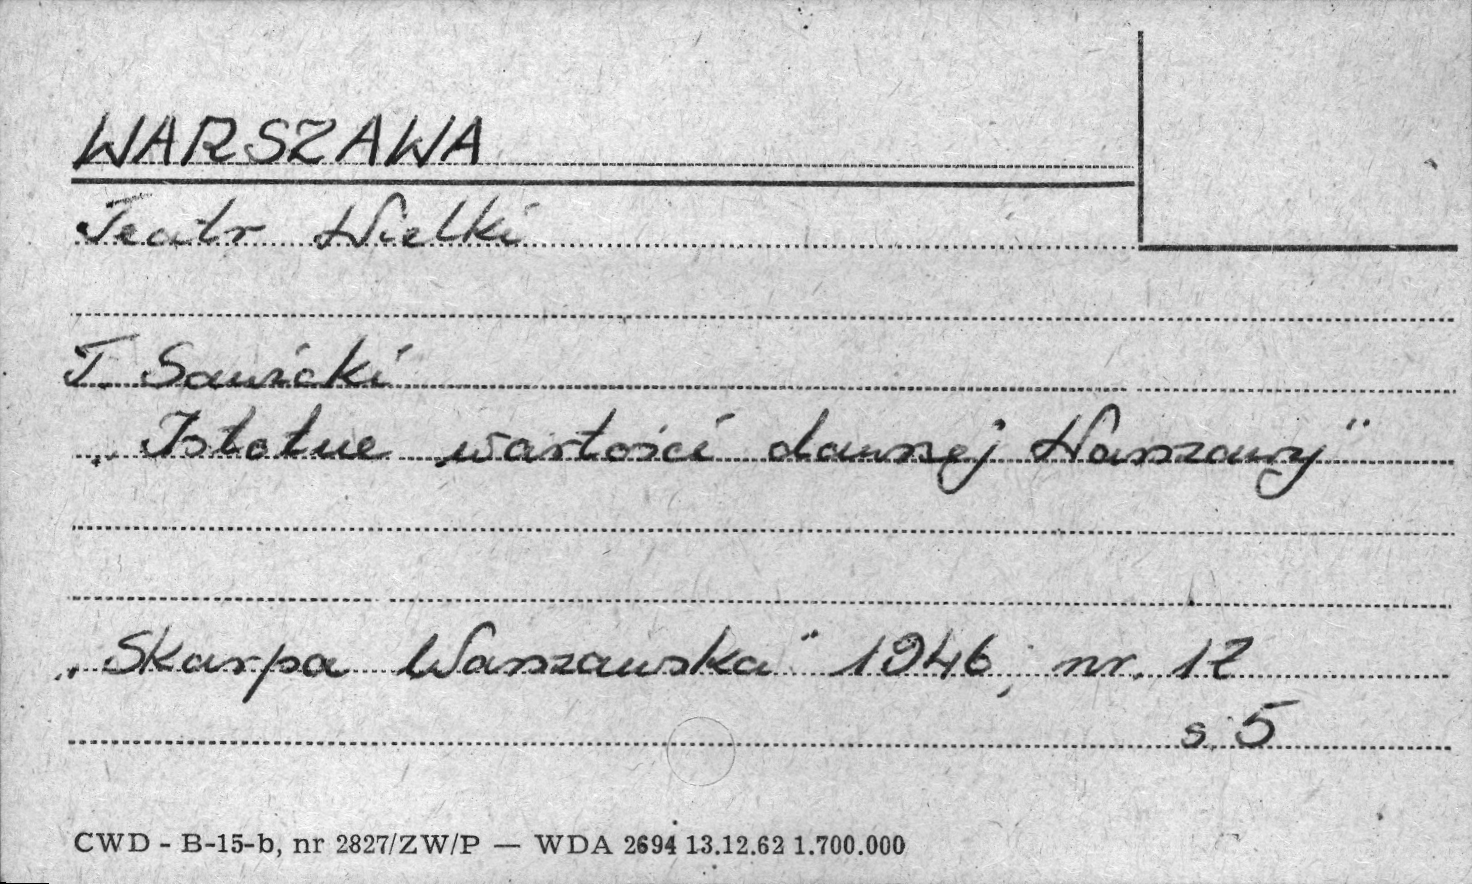 WARSZAWA
Teatr Wielki
T. Sawicki
„Istotne wartości dawnej Warszawy"
„Skarpa Warszawska" 1946, nr. 12
s. 5
CWD - B-15-b, nr 2827/ZW/P — WDA 2694 13.12.62 1.700.000